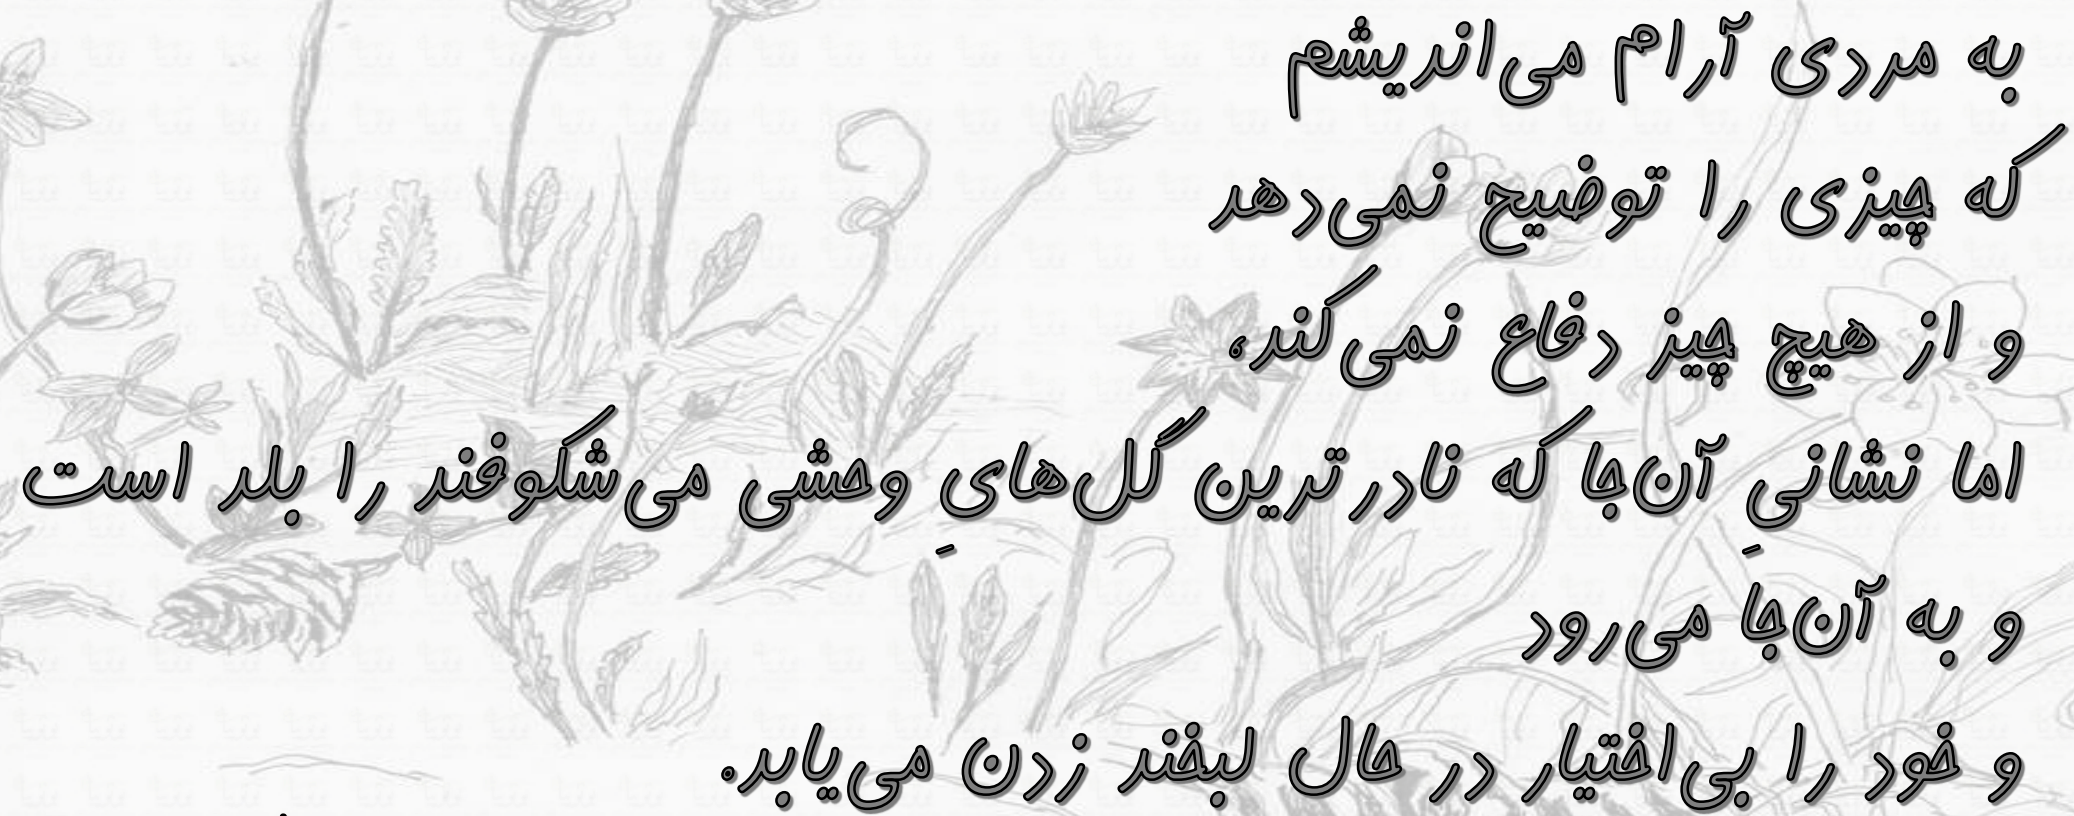 به مردی آرام می‌اندیشم
که چیزی را توضیح نمی‌دهد
و از هیچ چیز دفاع نمی‌کند،
اما نشانیِ آن‌جا که نادرترین گل‌هایِ وحشی می‌شکوفند را بلد است
و به آن‌جا می‌رود
و خود را بی‌اختیار در حال لبخند زدن می‌یابد.